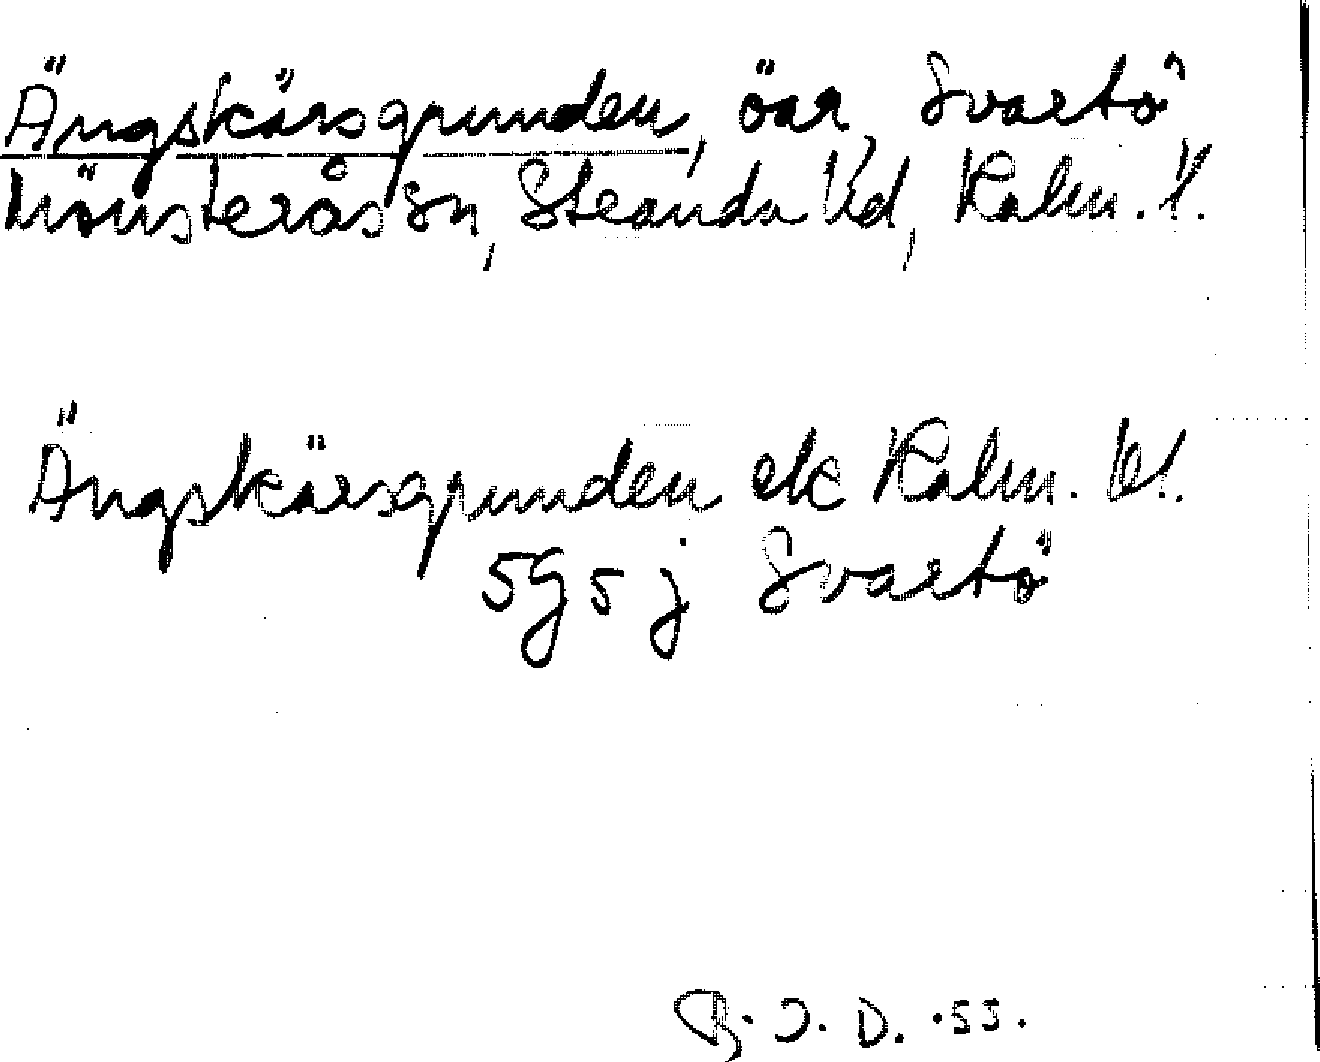 Ängskärsgrunden, öar, Svartö
Mönsterås sn, Stranda hd, Kalm. l.
Ängskärsgrunden ek Kalm. l.
5G5j Svartö
R. J. D. ·55.